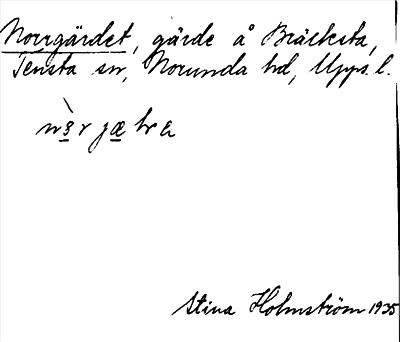 Norrgärdet, gärde å Bräcksta,
Tensta sn, Norunda hd, Upps. l.
Stina Holmström 1935